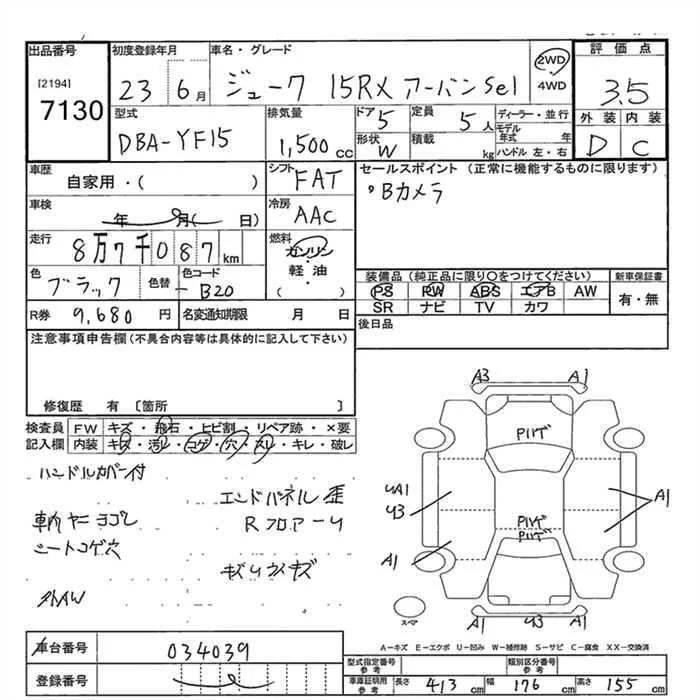 出品番号
[2194]
7130
初度登録年月
23 6月
車名・グレード
ジューク 15RX アーバンSel
2WD
4WD
評価点
3.5
外装 内装
D C
型式
DBA-YF15
排気量
1,500cc
ドア 5
定員 5人
形状 W
積載 kg
ディーラー・並行
モデル年式 年
ハンドル 左・右
車歴
自家用・( )
シフト FAT
セールスポイント (正常に機能するものに限ります)
・Bカメラ
車検
年 月( 日)
冷房 AAC
走行
8万7千087km
燃料
ガソリン
・
軽・油
( ・ )
色
ブラック
色替
色コード
B20
装備品(純正品に限り○をつけてください)
PS RW ABS エアB AW
SR ナビ TV カワ
新車保証書
有・無
R券 9,680円
名変通知期限 月 日
後日品
注意事項申告欄(不具合内容等は具体的に記入して下さい)
修復歴 有 〔箇所 〕
検査員記入欄
FW キズ・飛石・ヒビ割・リペア跡・×要
内装 キズ・汚レ・コゲ・穴・スレ・キレ・破レ
ハンドルカバー付
エンドパネル歪
Rフロアー
車輌ヤニヨゴレ
シートコゲ穴
外AW
A3 A1
Pハゲ
A1
Pハゲ
Pハゲ
A1
A1 A1
スペア
A−キズ E−エクボ U−凹み W−補修跡 S−サビ C−腐食 XX−交換済
車台番号 034039
登録番号
型式指定番号 参考
類別区分番号 参考
車庫証明用 参考
長さ 413cm
幅 176cm
高さ 155cm